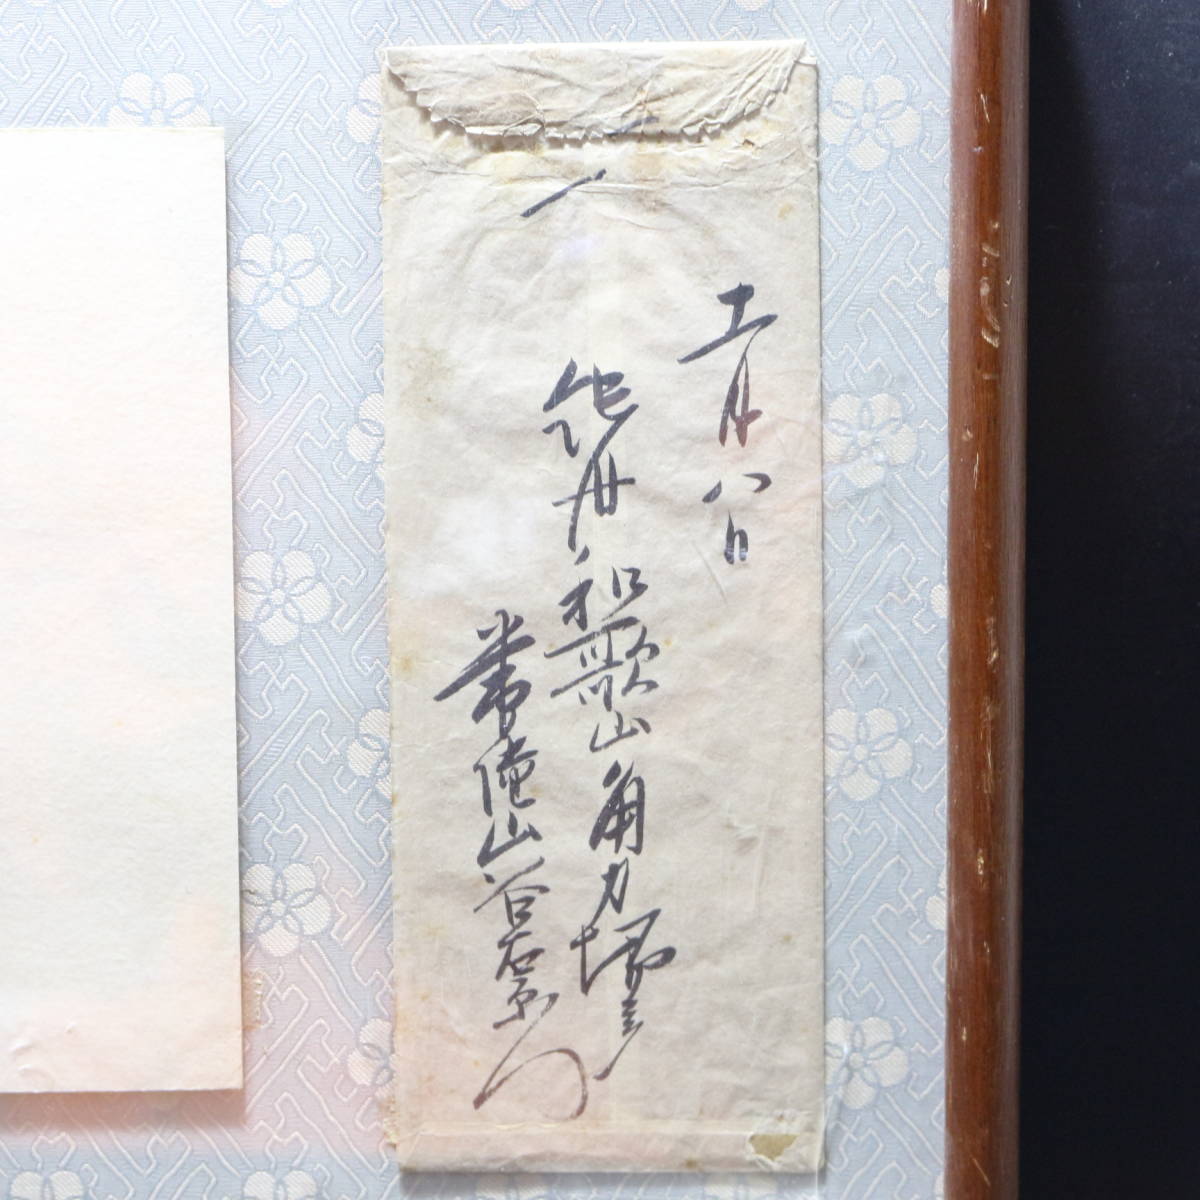 十一月八日
紀州和歌山角力場ニテ
常陸山谷右衛門